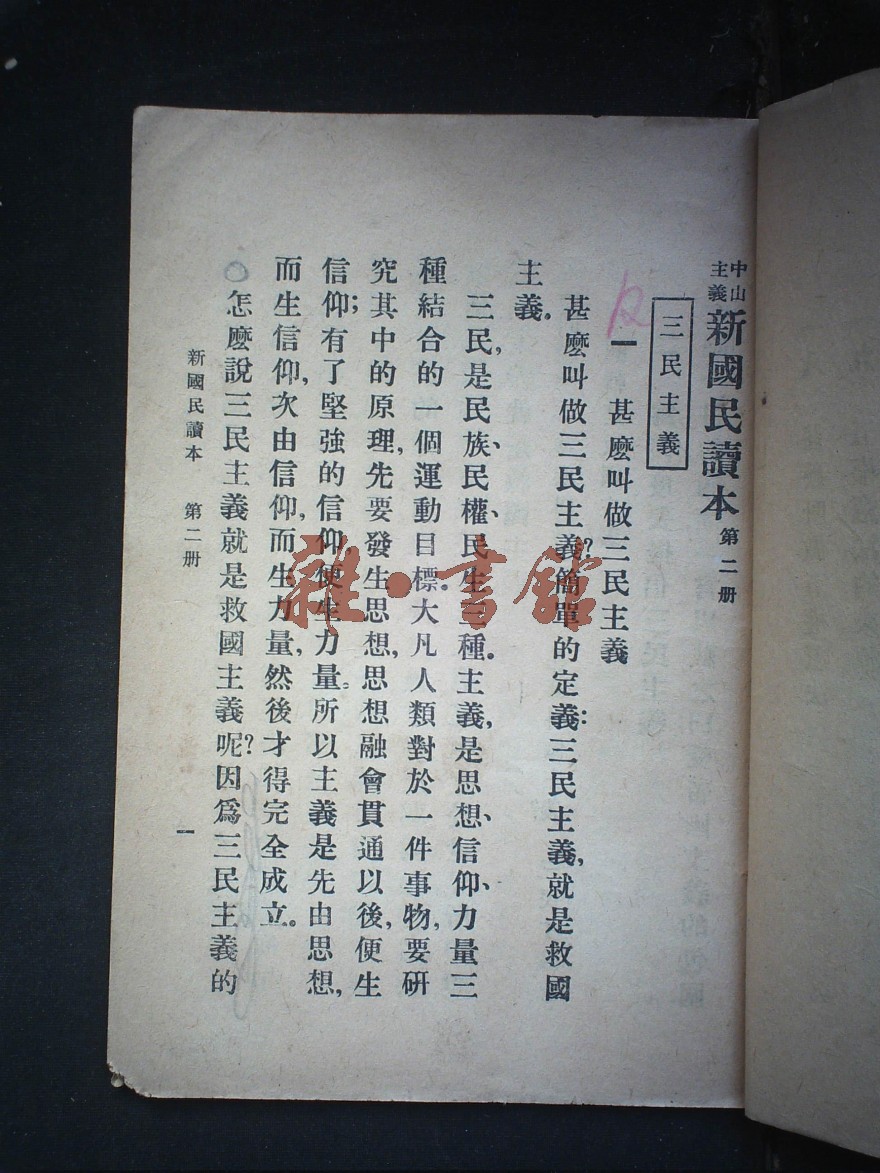 中山主義新國民讀本 第二册
三民主義
一 甚麽叫做三民主義
甚麽叫做三民主義?簡單的定義:三民主義,就是救國
主義。
三民,是民族、民權、民生三種。主義,是思想、信仰、力量三
種結合的一個運動目標。大凡人類對於一件事物,要研
究其中的原理,先要發生思想,思想融會貫通以後,便生
信仰;有了堅強的信仰,便生力量。所以主義是先由思想,
而生信仰,次由信仰,而生力量,然後才得完全成立。
怎麽說三民主義就是救國主義呢?因爲三民主義的
新國民讀本 第二册 一
雜·書館